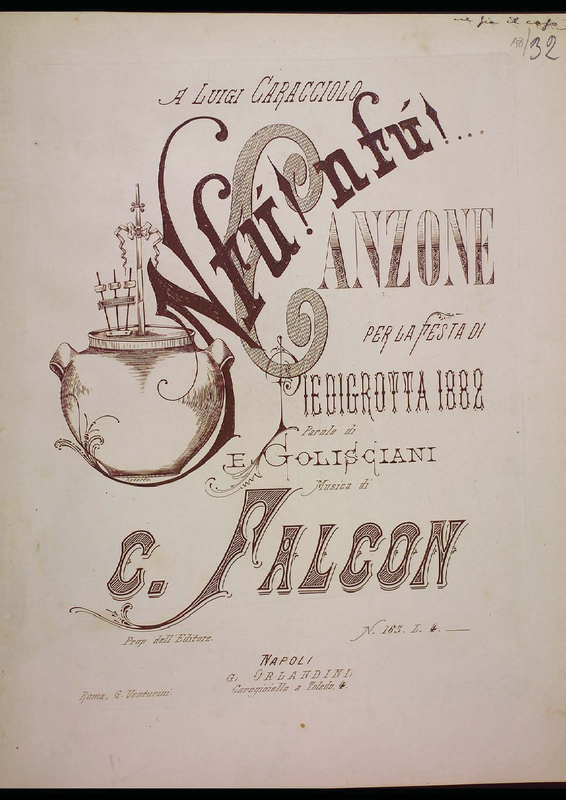 32
A LUIGI CARACCIOLO
Nfú! nfú!....
CANZONE
PER LA FESTA DI
PIEDIGROTTA 1882
Parole di
E. GOLISCIANI
Musica di
C. FALCON
Prop. dell'Editore.
N. 163. L. 4. —
NAPOLI
G. ORLANDINI
Carogioiello a Toledo, 4.
Roma, G. Venturini